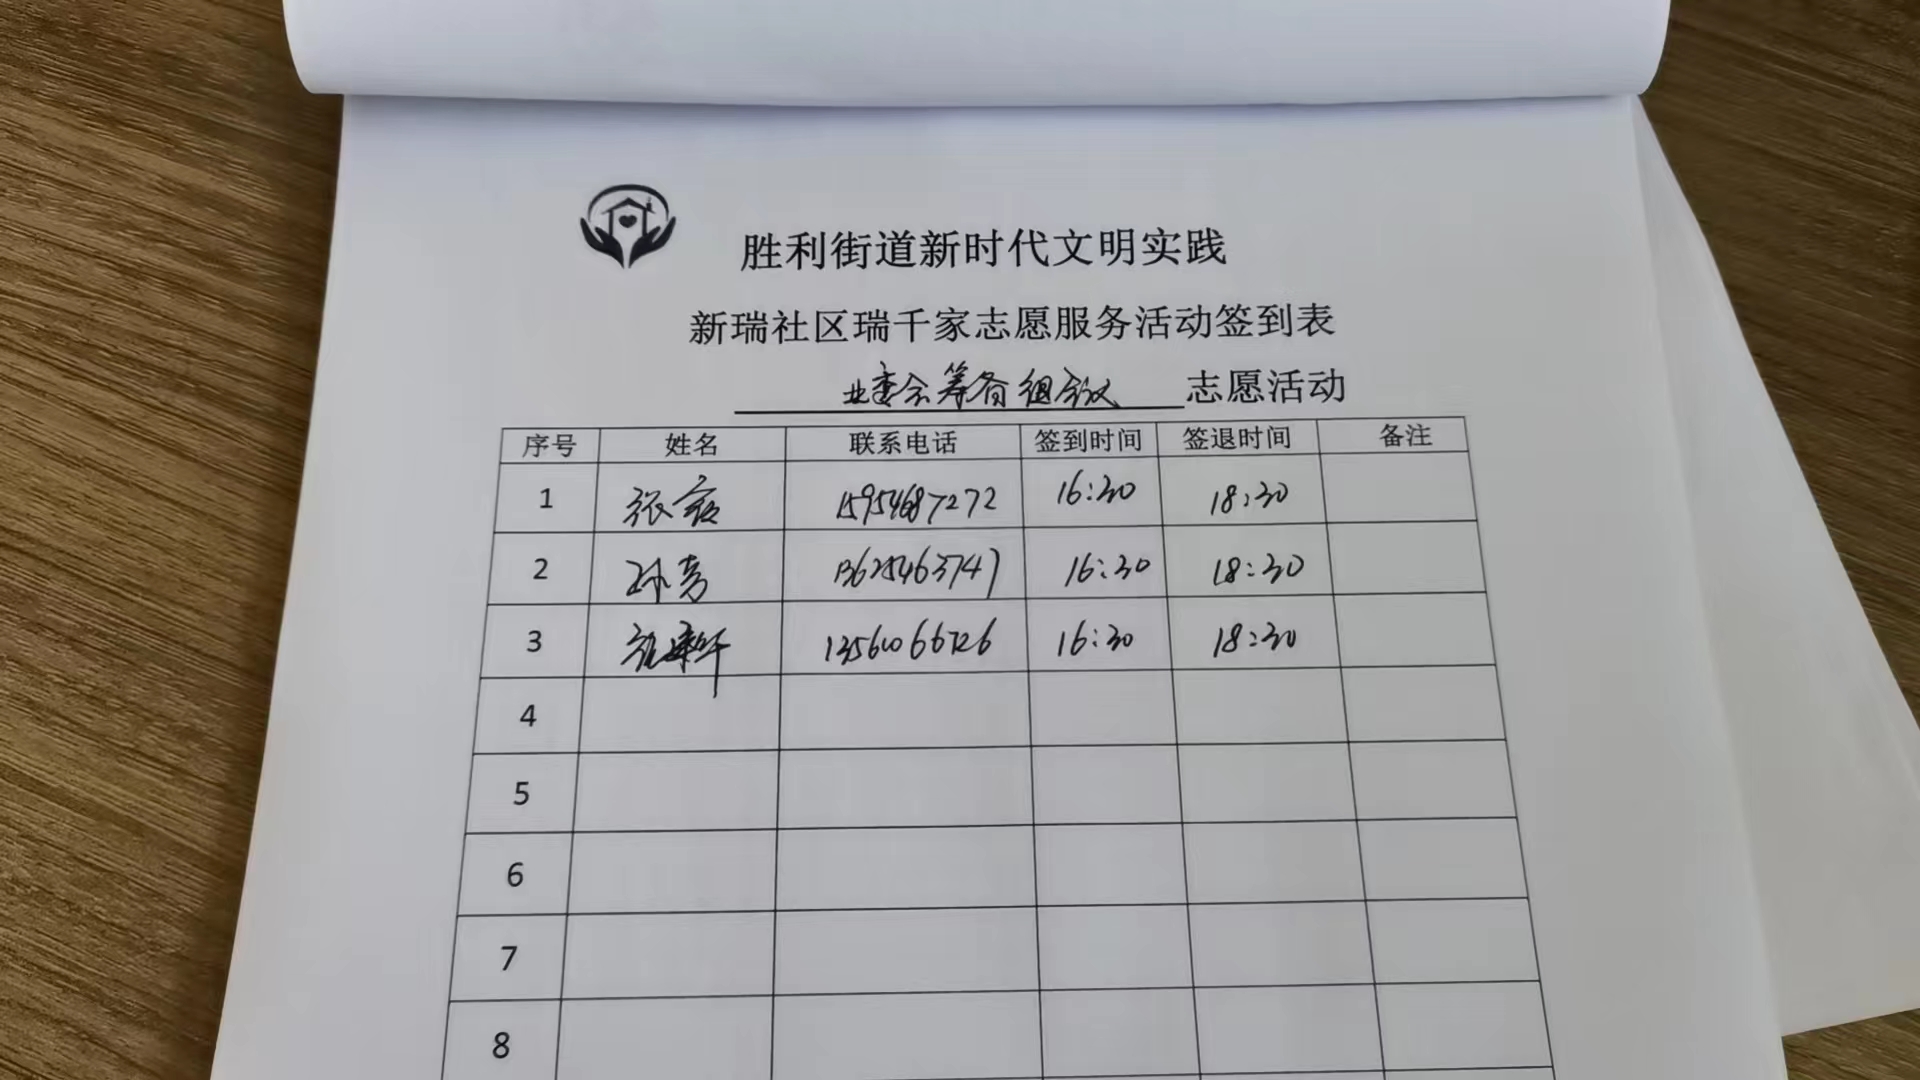 胜利街道新时代文明实践
新瑞社区瑞千家志愿服务活动签到表
业委会筹备组会议 志愿活动
序号 姓名 联系电话 签到时间 签退时间 备注
1 张 15954687272 16:30 18:30
2 孙芳 13625463747 16:30 18:30
3 16:30 18:30
4
5
6
7
8